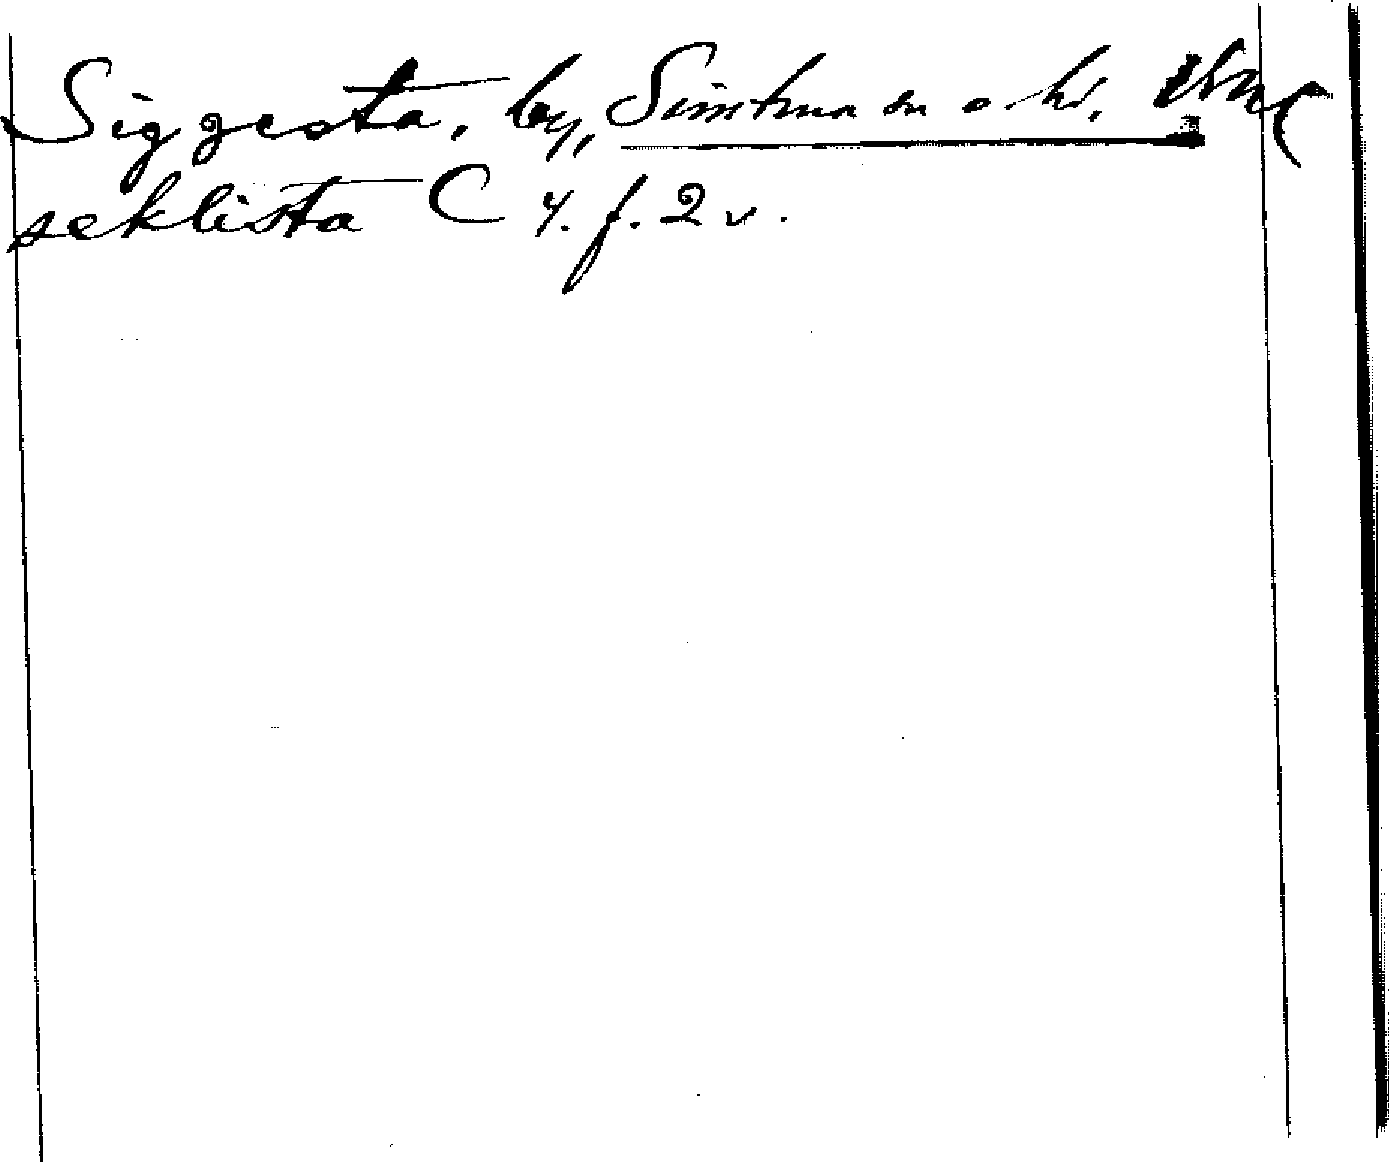 Siggesta, by, Simtuna sn o hd,
seklista C 4. f. 2 v.